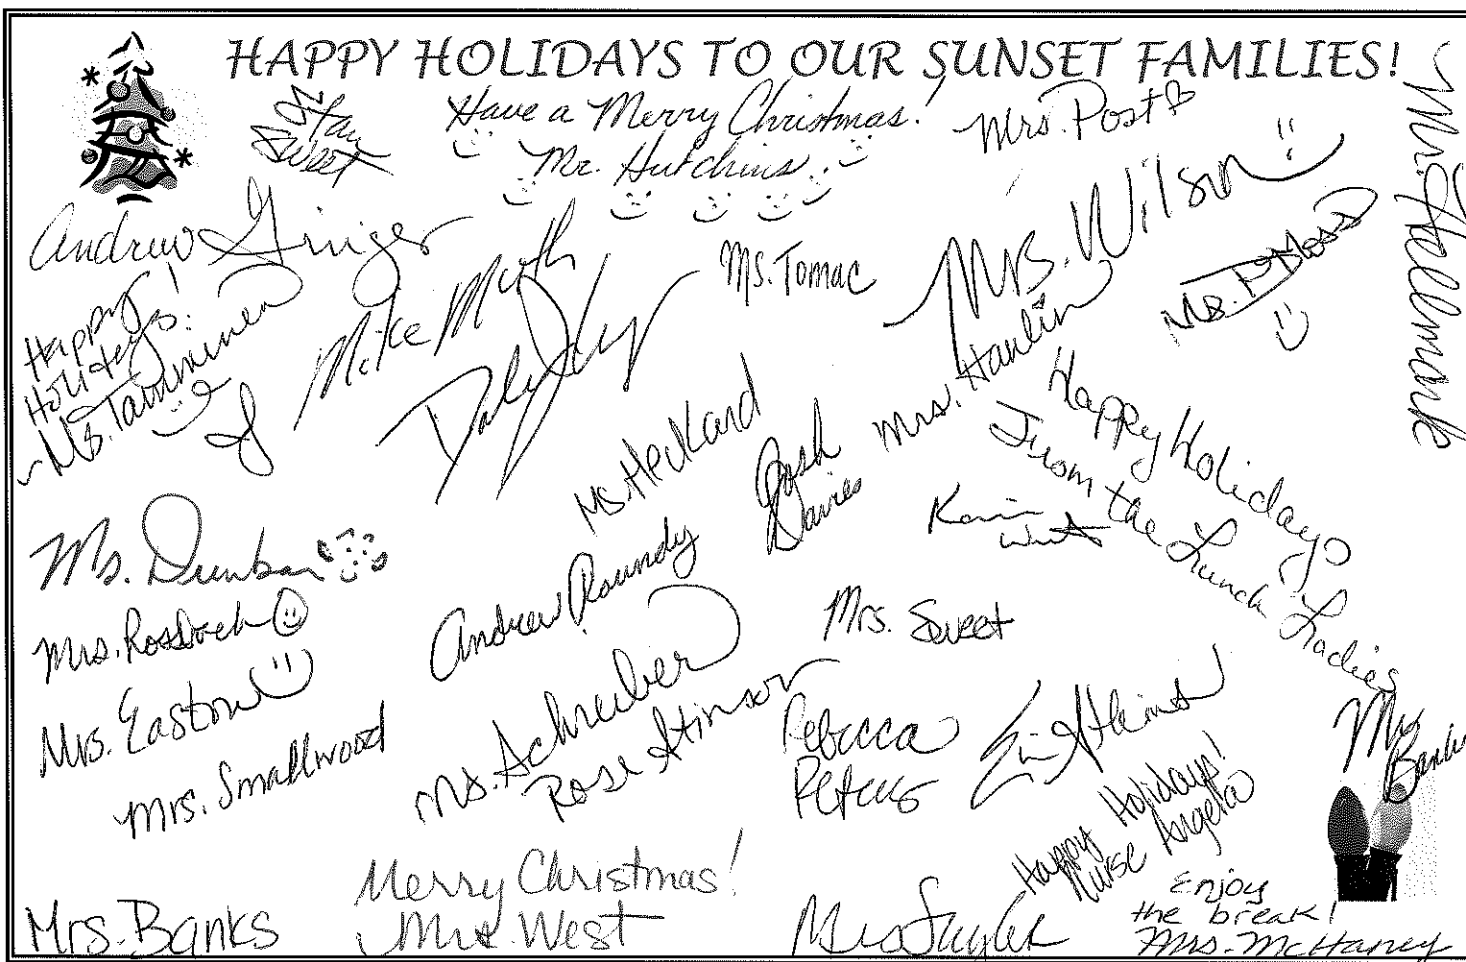 HAPPY HOLIDAYS TO OUR SUNSET FAMILIES!
Sweet
Have a Merry Christmas!
Mr. Hutchins
Mrs. Post
Mr. Hellmark
Andrew Gringer
Mrs. Wilson
Ms. Tomac
Mike Muth
Happy
Holidays!
~Ms. Tamminen
Mrs. Hanlin
Ms. Heckard
Josh
Davies
Happy Holidays
From the Lunch Ladies
Karin
Ms. Dunbar
Andrew Roundy
Mrs. Rossbach
Mrs. Sweet
Mrs. Easton
Ms. Schreiber
Rose Stinson
Mrs. Smallwood
Rebecca
Peters
Mrs
Banks
Happy Holidays!
Nurse Angela
Merry Christmas!
Mrs. West
Mrs. Banks
Enjoy
the break!
Mrs. McHaney